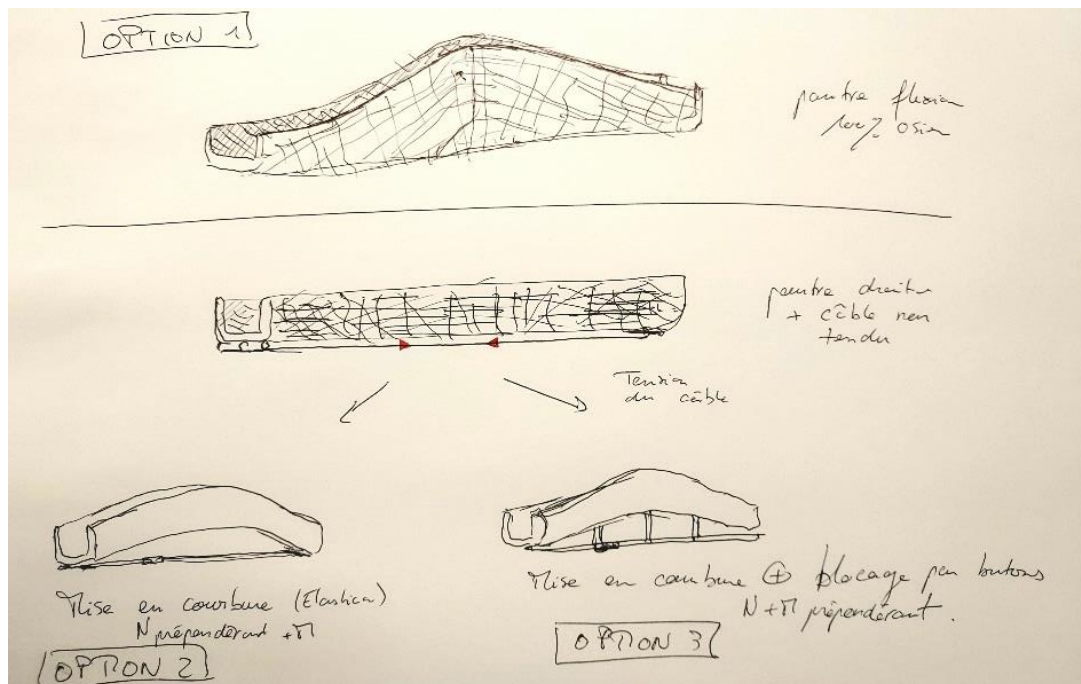 OPTION 1
poutre flexion
100% osier
poutre droite
+ câble non
tendu
Tension
du câble
Mise en courbure (Elastica)
N prépondérant + M
OPTION 2
Mise en courbure ⊕ blocage par butons
N + M prépondérant.
OPTION 3